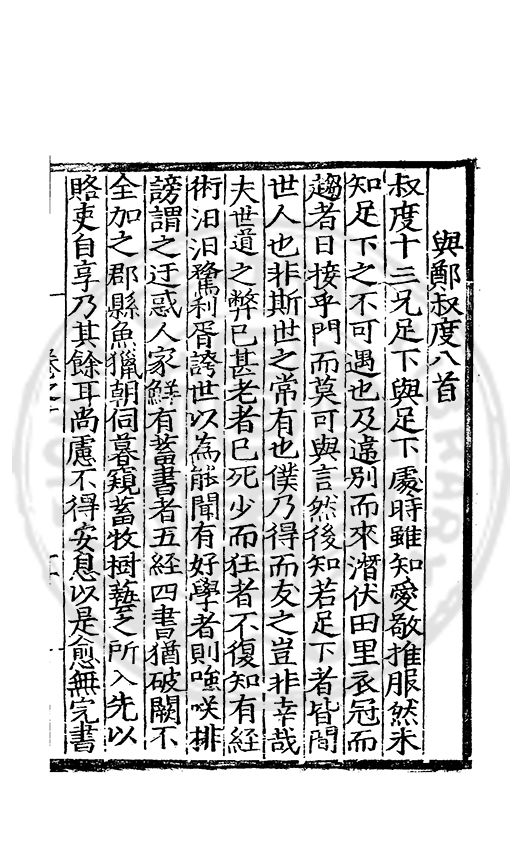 與鄭叔度八首
叔度十三兄足下與足下處時雖知愛敬推服然未
知足下之不可遇也及遠別而來潛伏田里衣冠而
趨者日接乎門而莫可與言然後知若足下者皆間
世人也非斯世之常有也僕乃得而友之豈非幸哉
夫世道之弊已甚老者已死少而狂者不復知有經
術汨汨騖利胥誇世以為能聞有好學者則嗤咲排
謗謂之迂惑人家鮮有蓄書者五經四書猶破闕不
全加之郡縣魚獵朝伺暮窺蓄牧樹藝之所入先以
賂吏自享乃其餘耳尚慮不得安息以是愈無完書